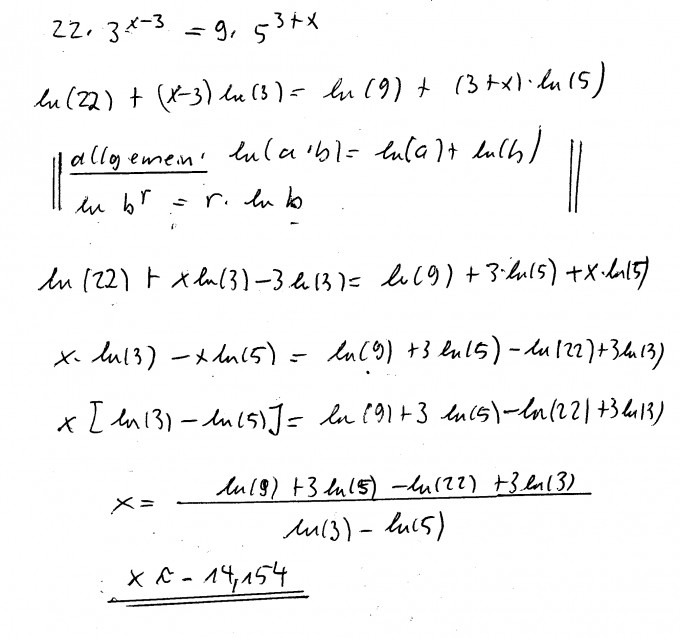 22 · 3^{x-3} = 9 · 5^{3+x}
ln(22) + (x-3) ln(3) = ln(9) + (3+x) · ln(5)
allgemein: ln(a·b) = ln(a) + ln(b)
ln b^r = r · ln b
ln(22) + x ln(3) - 3 ln(3) = ln(9) + 3·ln(5) + x·ln(5)
x · ln(3) - x ln(5) = ln(9) + 3 ln(5) - ln(22) + 3 ln(3)
x [ln(3) - ln(5)] = ln(9) + 3 ln(5) - ln(22) + 3 ln(3)
x = \frac{ln(9) + 3 ln(5) - ln(22) + 3 ln(3)}{ln(3) - ln(5)}
x ≈ - 14,154